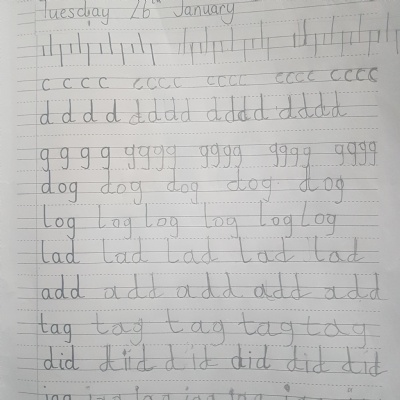 Tuesday 26th January
c c c c cccc cccc cccc cccc
d d d d dddd dddd dddd
g g g g gggg gggg gggg gggg
dog dog dog dog dog
log log log log log log
lad lad lad lad lad
add add add add add
tag tag tag tag tag
did did did did did did